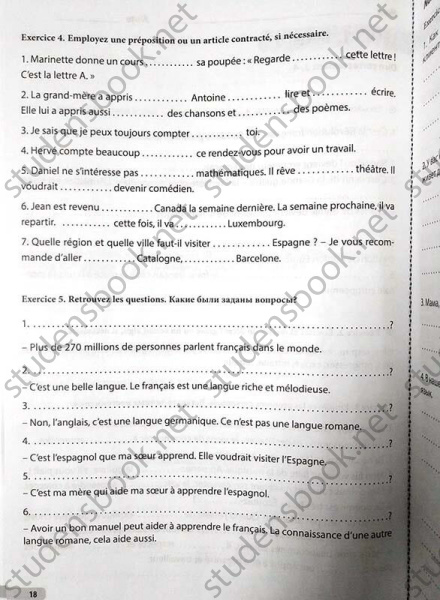 Exercice 4. Employez une préposition ou un article contracté, si nécessaire.
1. Marinette donne un cours .............. sa poupée : « Regarde .............. cette lettre !
C'est la lettre A. »
2. La grand-mère a appris .............. Antoine .............. lire et .............. écrire.
Elle lui a appris aussi .............. des chansons et .............. des poèmes.
3. Je sais que je peux toujours compter .............. toi.
4. Hervé compte beaucoup .............. ce rendez-vous pour avoir un travail.
5. Daniel ne s'intéresse pas .............. mathématiques. Il rêve .............. théâtre. Il
voudrait .............. devenir comédien.
6. Jean est revenu .............. Canada la semaine dernière. La semaine prochaine, il va
repartir. .............. cette fois, il va .............. Luxembourg.
7. Quelle région et quelle ville faut-il visiter .............. Espagne ? – Je vous recom-
mande d'aller .............. Catalogne, .............. Barcelone.
Exercice 5. Retrouvez les questions. Какие были заданы вопросы?
1. .............. ?
– Plus de 270 millions de personnes parlent français dans le monde.
2. .............. ?
– C'est une belle langue. Le français est une langue riche et mélodieuse.
3. .............. ?
– Non, l'anglais, c'est une langue germanique. Ce n'est pas une langue romane.
4. .............. ?
– C'est l'espagnol que ma sœur apprend. Elle voudrait visiter l'Espagne.
5. .............. ?
– C'est ma mère qui aide ma sœur à apprendre l'espagnol.
6. .............. ?
– Avoir un bon manuel peut aider à apprendre le français. La connaissance d'une autre
langue romane, cela aide aussi.
18
studensbook.net